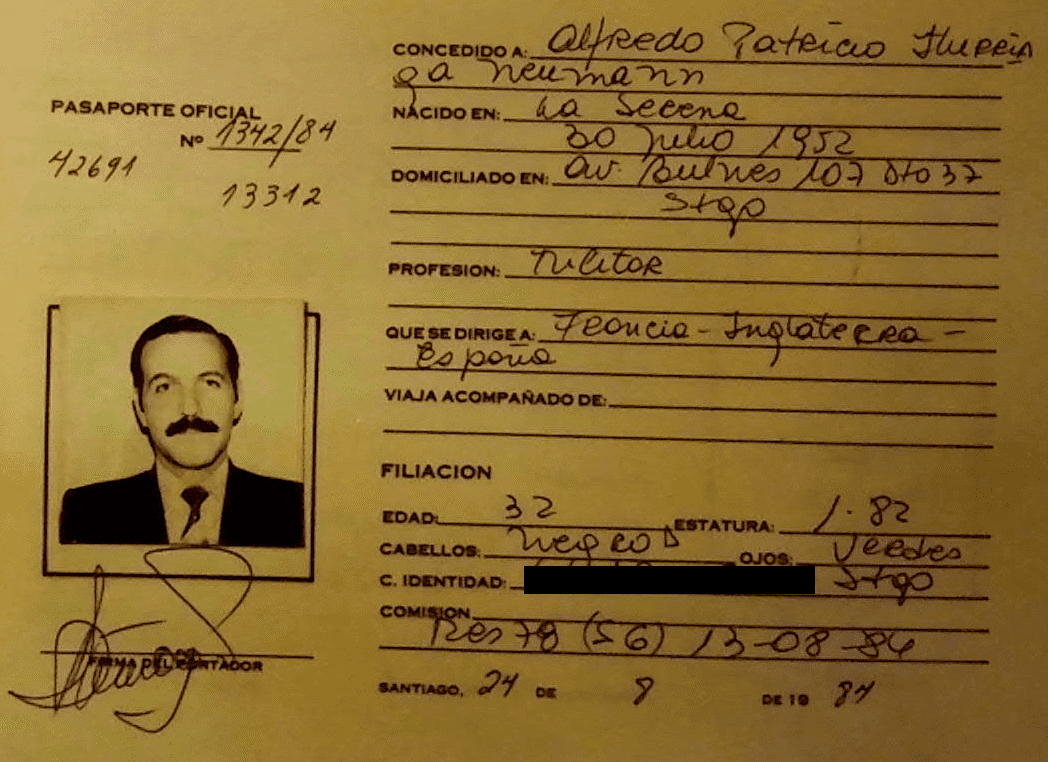 PASAPORTE OFICIAL
Nº 1342/84
42691
13312
CONCEDIDO A: Alfredo Patricio Iturria
ga Neumann
NACIDO EN: La Serena
30 Julio 1952
DOMICILIADO EN: Av. Bulnes 107 Dto 37
Stgo
PROFESION: Militar
QUE SE DIRIGE A: Francia - Inglaterra -
España
VIAJA ACOMPAÑADO DE:
FILIACION
EDAD: 32 ESTATURA: 1.82
CABELLOS: Negros OJOS: Verdes
C. IDENTIDAD: Stgo
COMISION
Res 78 (SG) 13-08-84
FIRMA DEL PORTADOR
SANTIAGO, 24 DE 8 DE 19 84